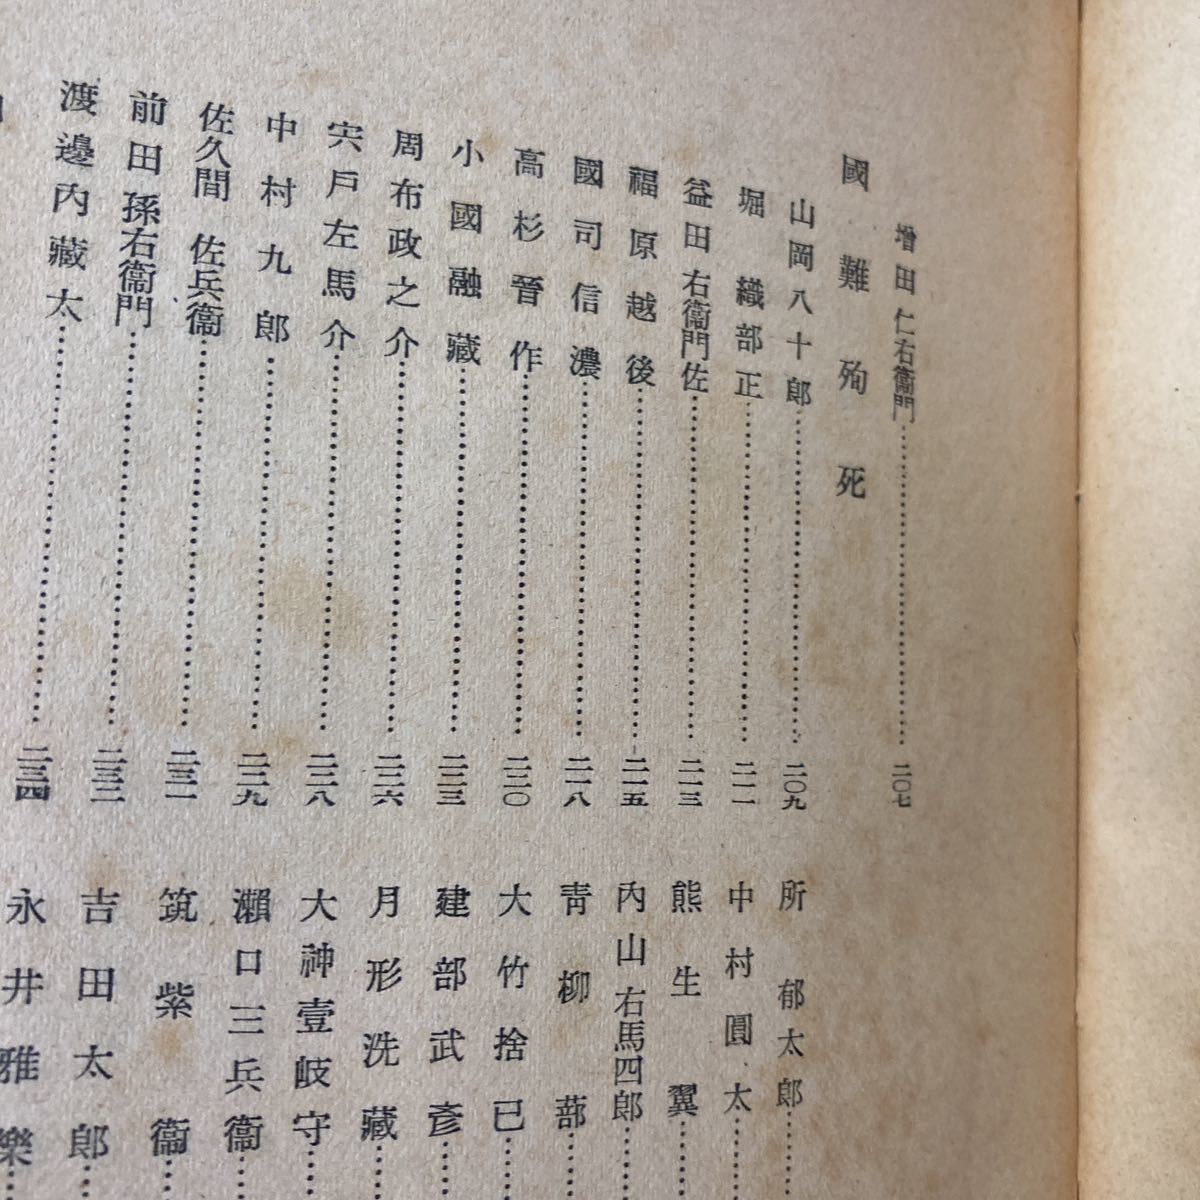 增田仁右衞門……二〇七
國難殉死
山岡八十郎……二〇九
堀織部正……二一一
益田右衞門佐……二一三
福原越後……二一五
國司信濃……二一八
高杉晉作……二二〇
小國融藏……二二三
周布政之介……二二六
宍戶左馬介……二二八
中村九郎……二二九
佐久間佐兵衞……二三一
前田孫右衞門……二三二
渡邊內藏太……二三四
所郁太郎……
中村圓太……
熊生翼……
內山右馬四郎……
靑柳蔀……
大竹捨已……
建部武彥……
月形洗藏……
大神壹岐守……
瀨口三兵衞……
筑紫衞……
吉田太郎……
永井雅樂……